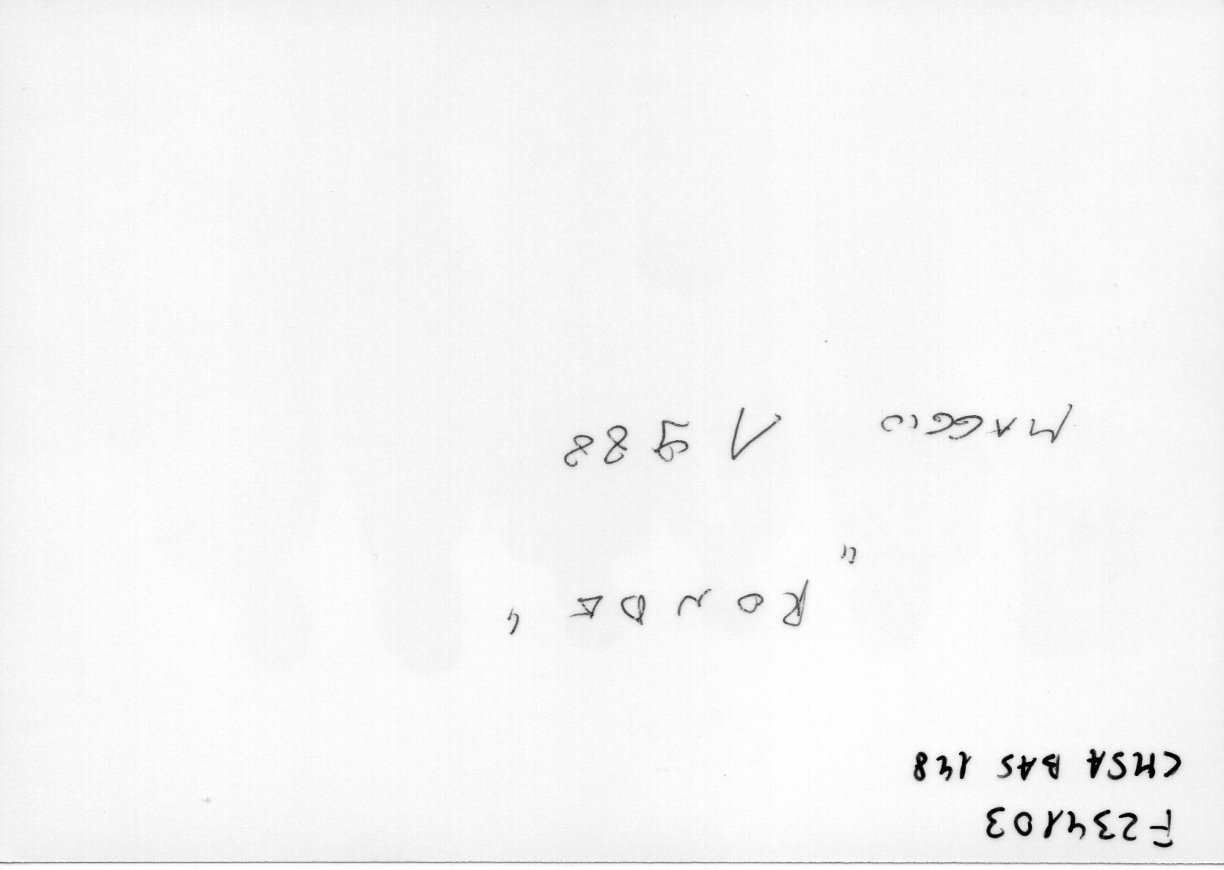 F234103
CMSA BAS 148
"RONDE"
MAGGIO 1988